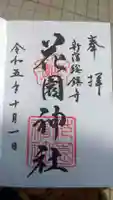 奉拝
新宿総鎮守
花園神社
令和五年十月一日